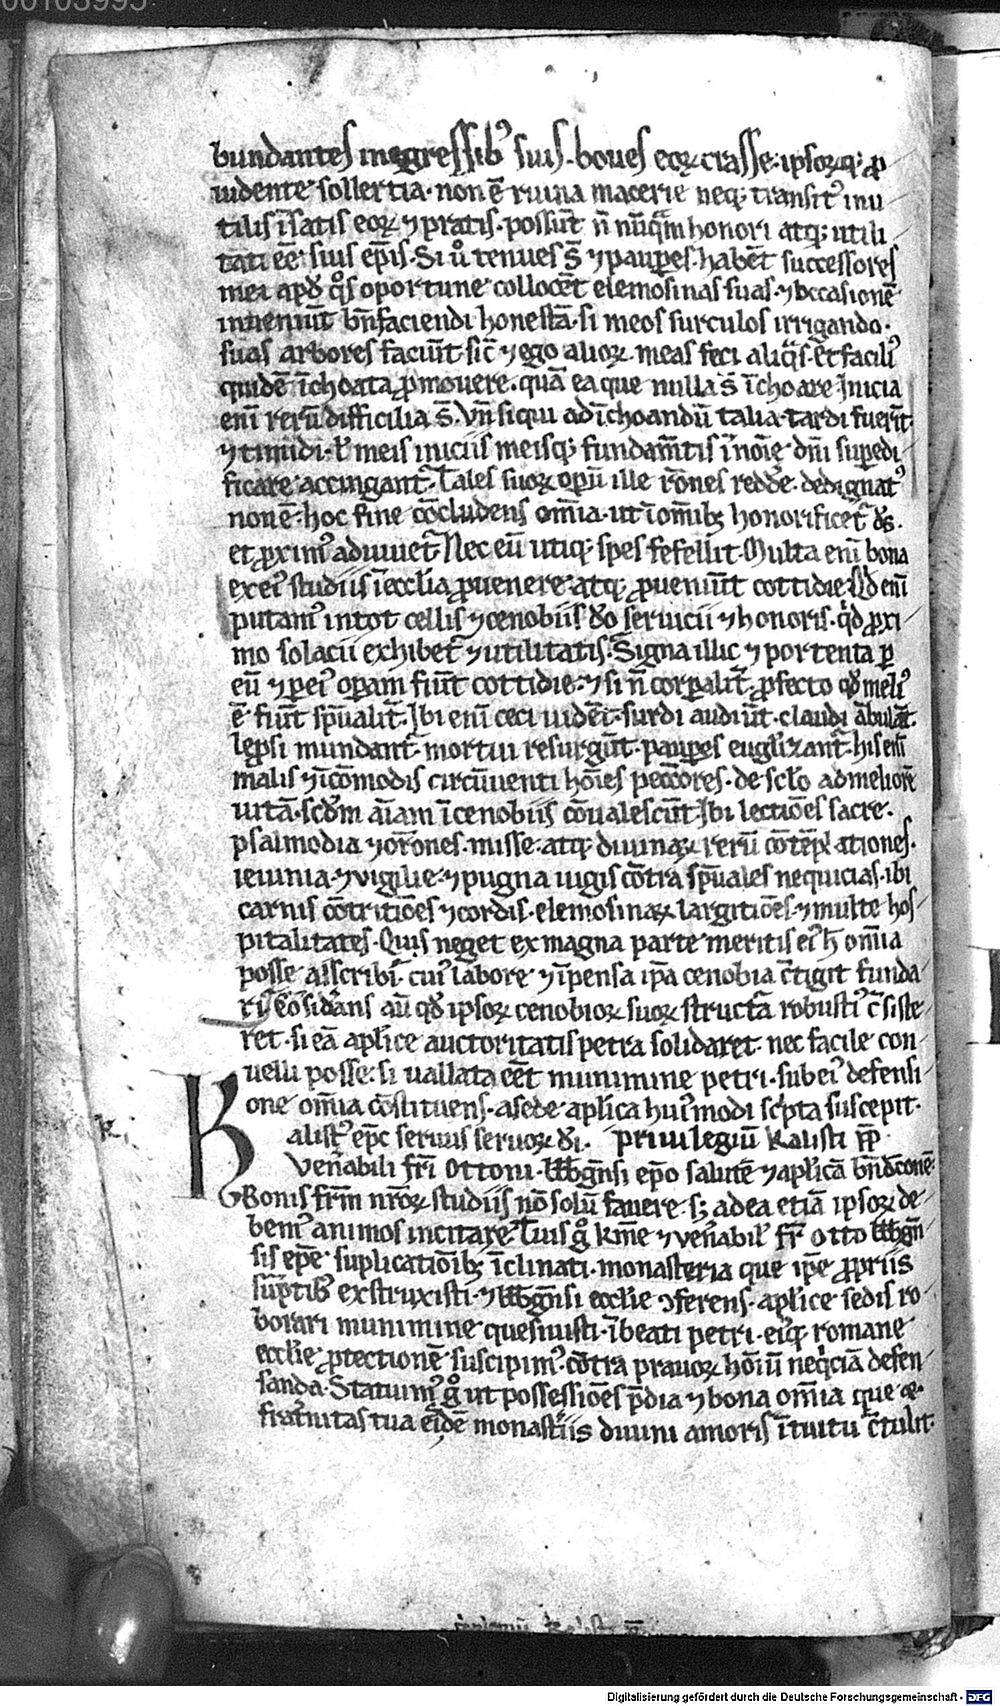 bundantes ingressib⁹ suis. boues eoꝝ crasse. ipsoꝝq; ꝓ
uidente sollertia. non ē ruina macerie neq; transit⁹ inu
tilis ī satis eoꝝ ⁊ pratis. possūt n̄ nūqͣm honori atq; utili
tati eē suis ep̄is. Si u̓ tenues s̄t ⁊ paupes. habēt successores
mei apd̓ qͦs oportune collocēt elemosinas suas. ⁊ occasionē
inueniūt bn̄faciendi honestā. si meos surculos irrigando.
suas arbores faciūt. sic̄ ⁊ ego alioꝝ meas feci aliqͣs. Et facili⁹
quidē īchoata ꝓmouere. quā ea que nulla s̄t īchoare. Inicia
eni rerū difficilia s̄t. Vn̄ siqui ad īchoandū talia tardi fuerīt
⁊ timidi. ł meis iniciis meisq; fundam̄tis ī noīe dn̄i supedi
ficare accingant᷑. Tales suoꝝ opū ille rōnes redde dedignat⁹
non ē. hoc fine cōcludens om̄ia. ut ī om̄ib; honorificet᷑ ds̄.
et ꝓxim⁹ adiuuet᷑. Nec eū utiq; spes fefellit. Multa eni bona
ex ei⁹ studiis ī eccl̄ia ꝓuenere atq; ꝓueniūt cottidie. Qd̓ eni
putam⁹ in tot cellis ⁊ cenobiis do seruicii ⁊ honoris. qd̓ ꝓxi
mo solacii exhibet᷑ ⁊ utilitatis. Signa illic ⁊ portenta ꝑ
eū ⁊ ꝑ ei⁹ opam fiūt cottidie. ⁊ si n̄ corꝑalit᷑. ꝓfecto qd̓ meli⁹
ē fiūt sp̄ualit᷑. Ibi eni ceci uidēt. surdi audiūt. claudi ābulāt.
lepsi mundant᷑. mortui resurgūt. paupes euglizant᷑. his eni
malis ⁊ īcōmodis circūuenti hoīes peccōres. de scl̄o ad meliorē
uitā. scdm aīam ī cenobiis cōualescūt. Ibi lectiōes sacre.
psalmodia ⁊ orōnes. misse. atq; diuinaꝝ rerū cōtēplationes.
ieiunia. ⁊ uigilie. ⁊ pugna iugis cōtra sp̄uales nequicias. ibi
carnis cōtritiōes ⁊ cordis. elemosinaꝝ largitiōes. ⁊ multe hos
pitalitates. Quis neget ex magna parte meritis ei⁹ h̄ om̄ia
posse asscribi. cui⁹ labore ⁊ īpensa ip̄a cenobia c̄tigit funda
ri. Cōsidans aū qd̓ ipsoꝝ cenobioꝝ suoꝝ structā robusti⁹ c̄siste
ret. si eā aplice auctoritatis petra solidaret. nec facile con
uelli posse. si uallata eēt munimine petri. sub ei⁹ defensi
one om̄ia cōstituens. a sede aplica hui⁹modi sc̄pta suscepit.
Kalist⁹ ep̄c seruus seruoꝝ di. priuilegiū Kalisti pp̄
Ven̄abili fr̄i Ottoni. bbgn̄si ep̄o salutē ⁊ aplicā bn̄dc̄onē.
Bonis fr̄m nr̄oꝝ studiis nō solū fauere. s; ad ea etiā ipsoꝝ de
bem⁹ animos incitare. Tuis g̊ kme ⁊ ven̄abil⁹ fr̄ Otto bbgn̄
sis ep̄e suplicatiōib; īclinati. monasteria que ip̄e ꝓpriis
sūptib⁹ exstruxisti. ⁊ bbgn̄si eccl̄ie ↄferens. aplice sedis ro
borari munimine quesiuisti. ī beati petri. eiq; romane
eccl̄ie ꝓtectionē suscipim⁹. cōtra prauoꝝ hoīū neq̓ciā defen
sanda. Statuim⁹ g̊ ut possessiōes p̄dia ⁊ bona om̄ia que
frat̓nitas tua eidē monast̓iis diuini amoris ītuitu c̄tulit.
Digitalisierung gefördert durch die Deutsche Forschungsgemeinschaft - DFG